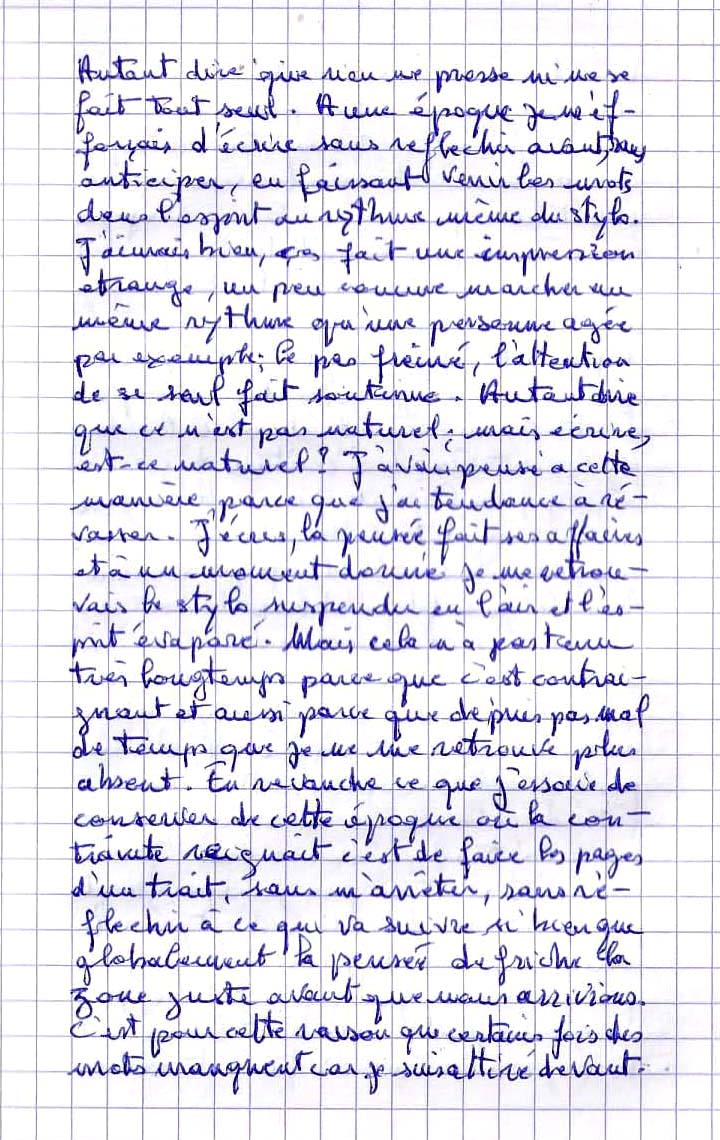 Autant dire que rien ne presse ni ne se
fait tout seul. A une époque je m'ef-
forçais d'écrire sans reflechir avant, sans
anticiper, en faisant venir les mots
dans l'esprit au rythme même du stylo.
J'aimais bien, ça fait une impression
etrange, un peu comme marcher au
même rythme qu'une personne agée
par exemple; le pas freiné, l'attention
de ce seul fait soutenue. Autant dire
que ce n'est pas naturel; mais ecrire,
est-ce naturel? J'avais pensé a cette
manière, parce que j'ai tendance à rê-
vasser. J'écris, la pensée fait ses affaires
et à un moment donné je me retrou-
vais le stylo suspendu en l'air et l'es-
prit évaporé. Mais cela n'a pas tenu
très longtemps parce que c'est contrai-
gnant et aussi parce que depuis pas mal
de temps que je ne me retrouve plus
absent. En revanche ce que j'essaie de
conserver de cette époque où la con-
trainte reignait c'est de faire les pages
d'un trait, sans m'arrêter, sans ré-
flechir à ce qui va suivre si bien que
globalement la pensée defriche la
zone juste avant que nous arrivions.
C'est pour cette raison que certains fois des
mots manquent car je suis attiré devant.